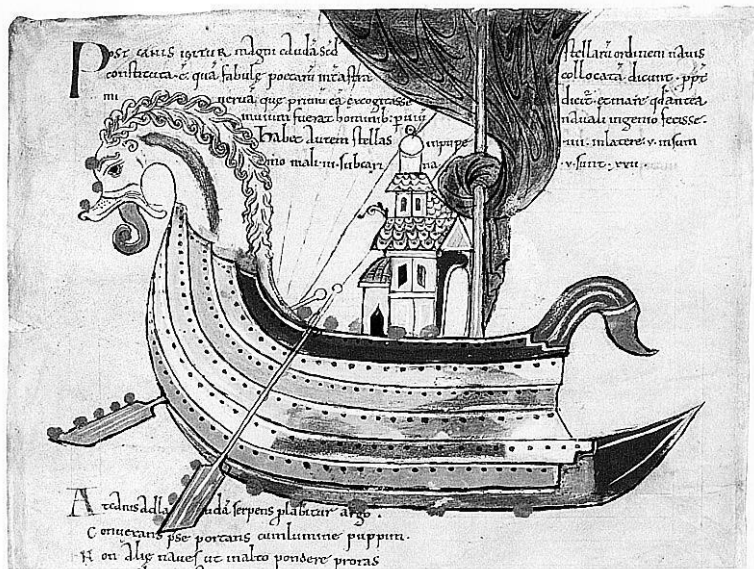 Post canis igitur magni caudā sed stellarū ordinem navis
constituta ē quā fabulę poetarū int astra collocatā dicunt ppt
minervā que primū eā excogitasse dicit et mare qd antea
invium fuerat hominib p navali ingenio fecisse
Habet autem stellas in puppe IIII in latere V in sum
mo mali III sub cari na V sunt XXII
At canis ad caudā serpens plabitur argo
Conversam pse portans cum lumine puppim
Non alię naves ut in alto pondere proras